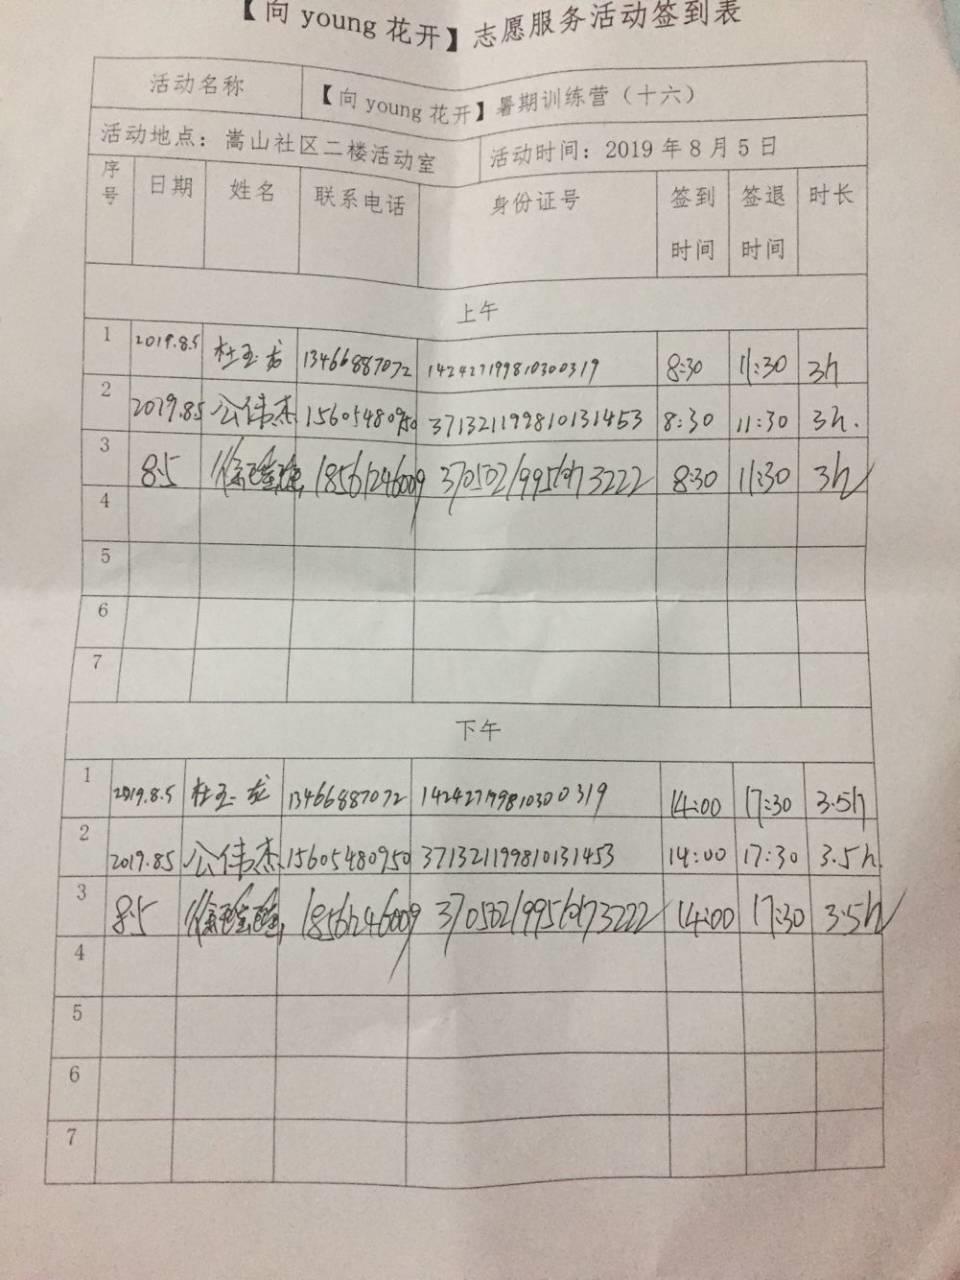 【向young花开】志愿服务活动签到表
活动名称 【向young花开】暑期训练营（十六）
活动地点：嵩山社区二楼活动室 活动时间：2019年8月5日
序号 日期 姓名 联系电话 身份证号 签到时间 签退时间 时长
上午
1 2019.8.5 杜玉龙 13466887072 142427199810300319 8:30 11:30 3h
2 2019.8.5 公伟杰 15605480950 371321199810131453 8:30 11:30 3h.
3 8.5 18561246009 8:30 11:30 3h
4
5
6
7
下午
1 2019.8.5 杜玉龙 13466887072 142427199810300319 14:00 17:30 3.5h
2 2019.8.5 公伟杰 15605480950 371321199810131453 14:00 17:30 3.5h
3 8.5 18561246009 14:00 17:30 3.5h
4
5
6
7